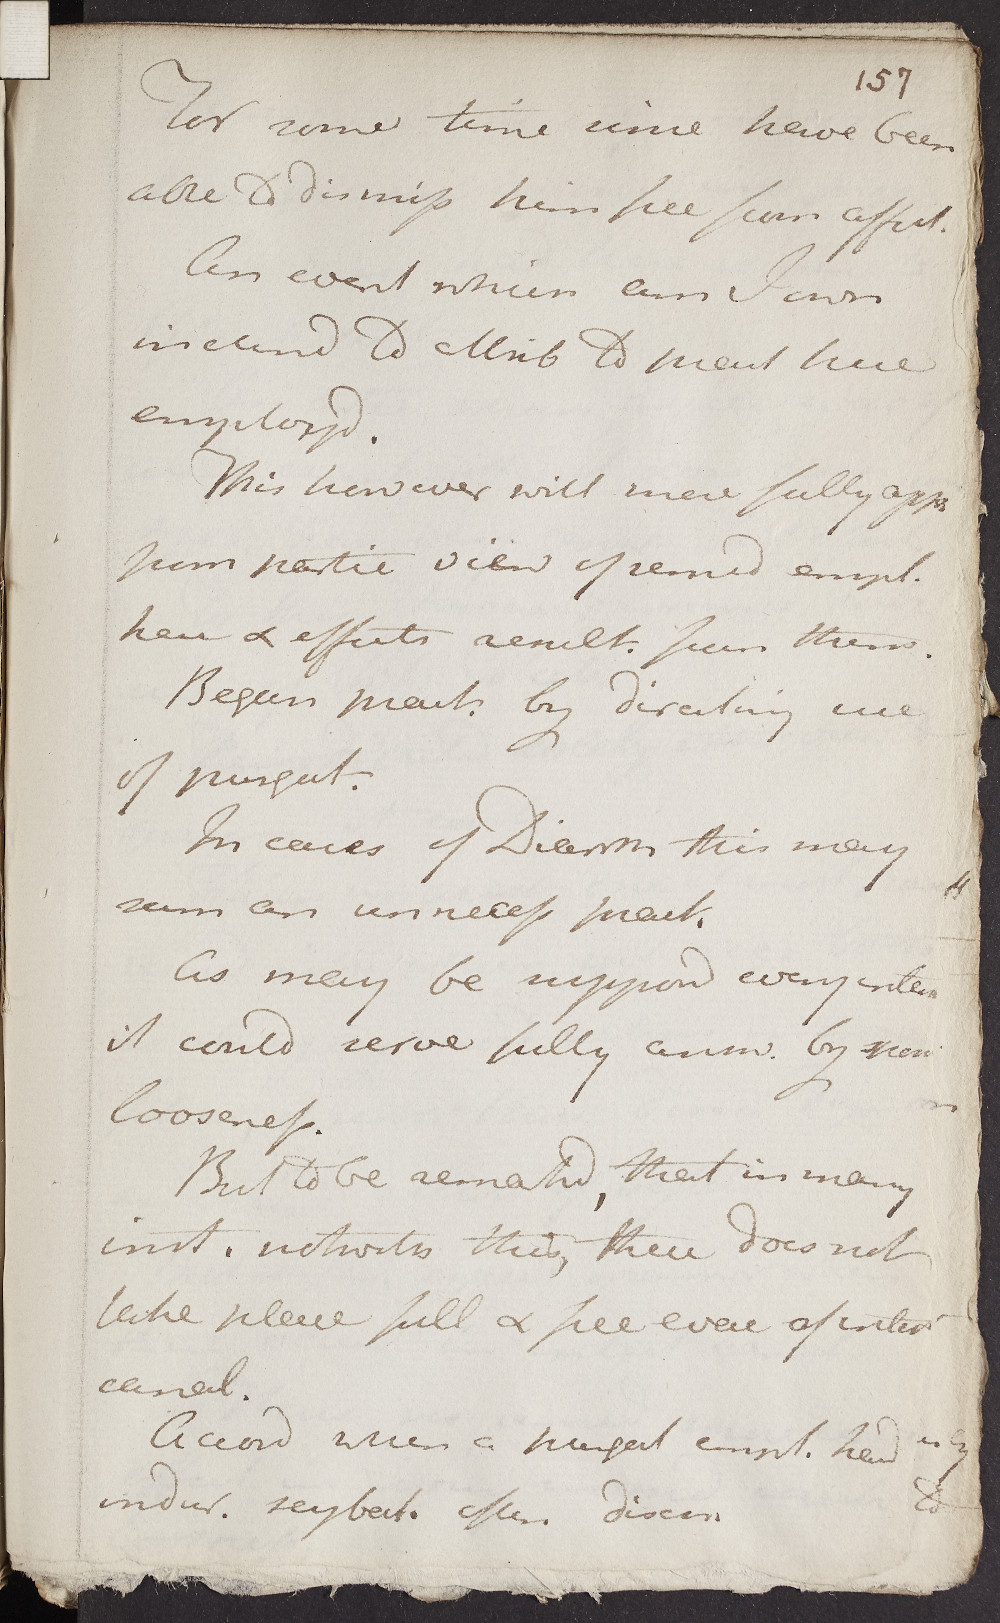 157
For some time since have been
able to dismiss him free from affect.
An event which am I own
inclind to attrib to pract here
employd.
This however will more fully appr
from partic view of remed empl.
here & effects result. from them.
Began pract. by directing use
of purgat.
In cases of Diarrh this may
seem an unnecess pract.
As may be supposd every inten
it could serve fully answ. by
looseness.
But to be remarkd, that in many
inst. notwith this, there does not
take place full & free evac of intest
canal.
Accord when a purgat empl. had
indur. scybal. often discov.